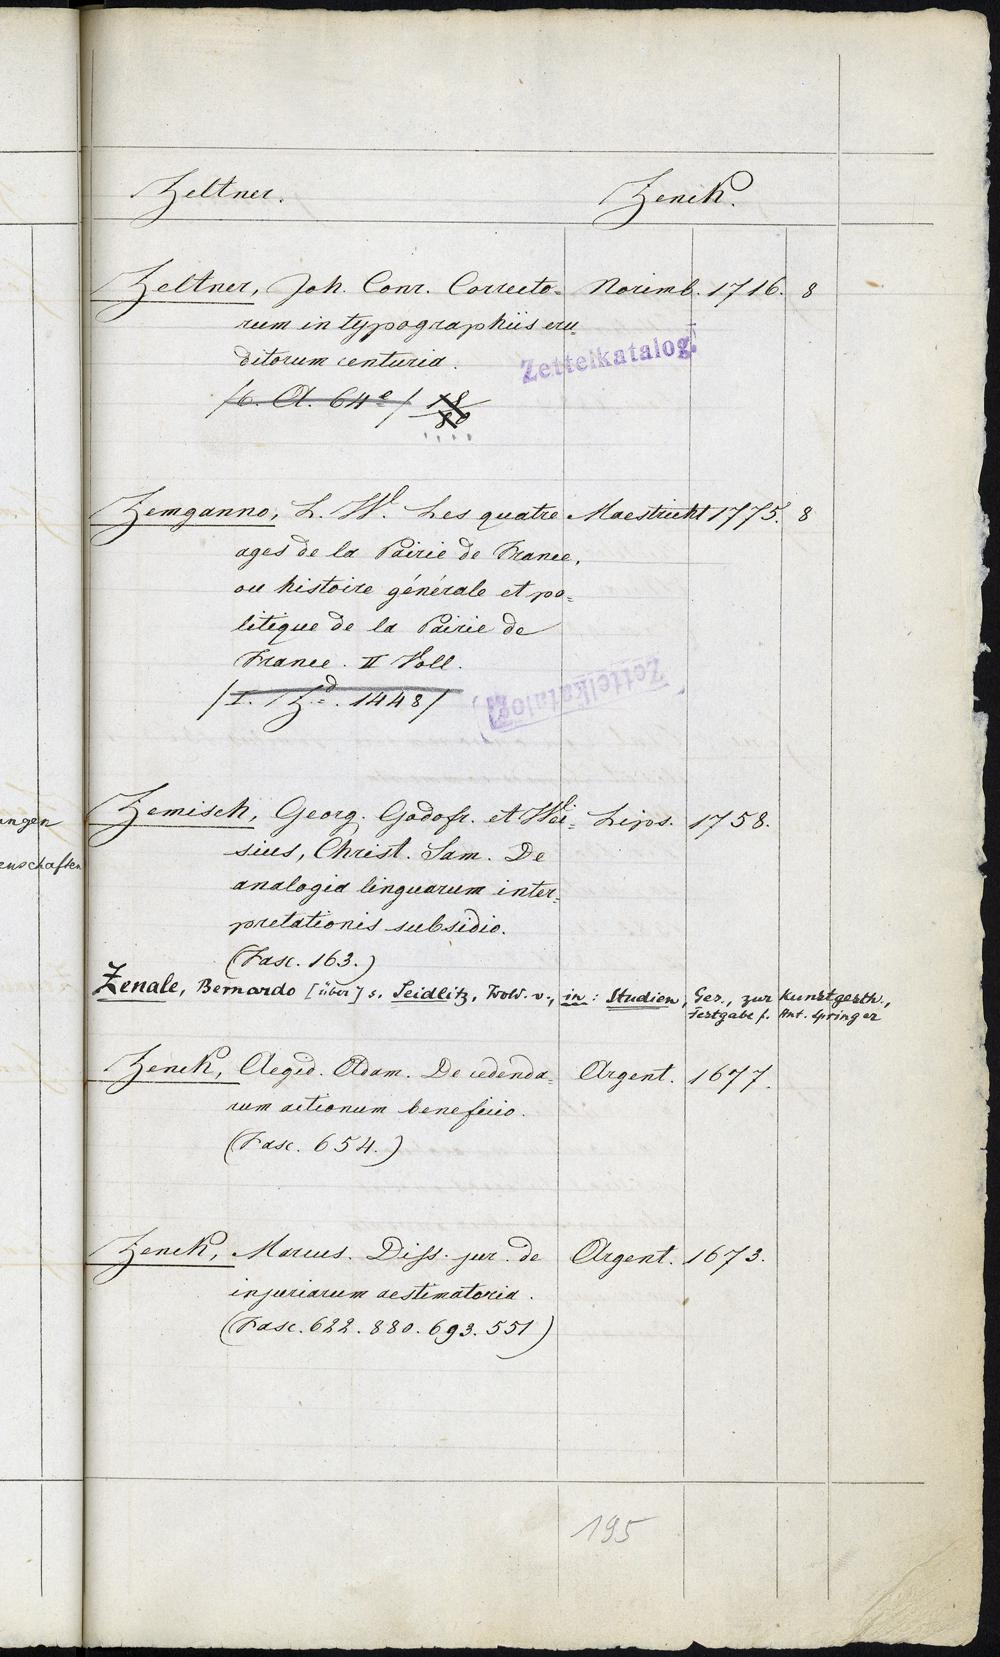 Zeltner. Zenck.
Zeltner, Joh. Conr. Correcto= Norimb. 1716. 8
rum in typographiis eru=
ditorum centuria.
Zettelkatalog!
/6. A. 64e/ 18/80
Zemganno, L. W. Les quatre Maestricht 1775. 8
ages de la Pairie de France,
ou histoire générale et po=
litique de la Pairie de
France. II Voll.
Zettelkatalog!
/I. 1448/
Zemisch, Georg. Godofr. et Wei= Lips. 1758.
sius, Christ. Sam. De
analogia linguarum inter=
pretationis subsidio.
(Fasc. 163.)
ungen
enschaften
Zenale, Bernardo [über] s. Seidlitz, Wold. v., in: Studien, Ges., zur Kunstgesch.,
Festgabe f. Ant. Springer
Zenck, Aegid. Adam. De cedenda= Argent. 1677.
rum actionum beneficio.
(Fasc. 654.)
Zenck, Marcus. Diss. jur. de Argent. 1673.
injuriarum aestimatoria.
(Fasc. 622. 880. 693. 551)
195